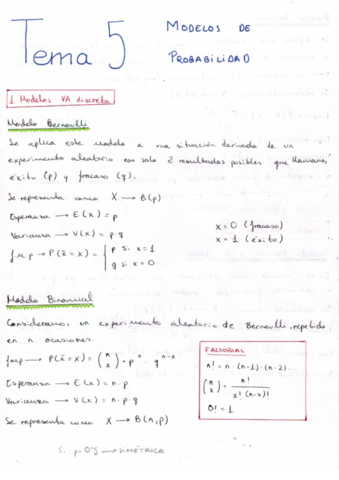 Tema 5
MODELOS DE
PROBABILIDAD
1. Modelos VA discreta
Modelo Bernoulli
Se aplica este modelo a una situación derivada de un
experimento aleatorio con solo 2 resultados posibles que llamamos
éxito (p) y fracaso (q).
Se representa como X → B(p)
Esperanza → E(x) = p
Varianza → V(x) = p·q
f.m.p → P(X = x) = { p si x = 1
q si x = 0
x = 0 (fracaso)
x = 1 (éxito)
Modelo Binomial
Consideramos un experimento aleatorio de Bernoulli, repetido
en n ocasiones.
fmp → P(X = x) = (n x) · p^x · q^n-x
Esperanza → E(x) = n·p
Varianza → V(x) = n·p·q
Se representa como X → B(n,p)
Si p=0'5 → SIMÉTRICA
FACTORIAL
n! = n·(n-1)·(n-2)...
(n x) = n! / x!(n-x)!
0! = 1